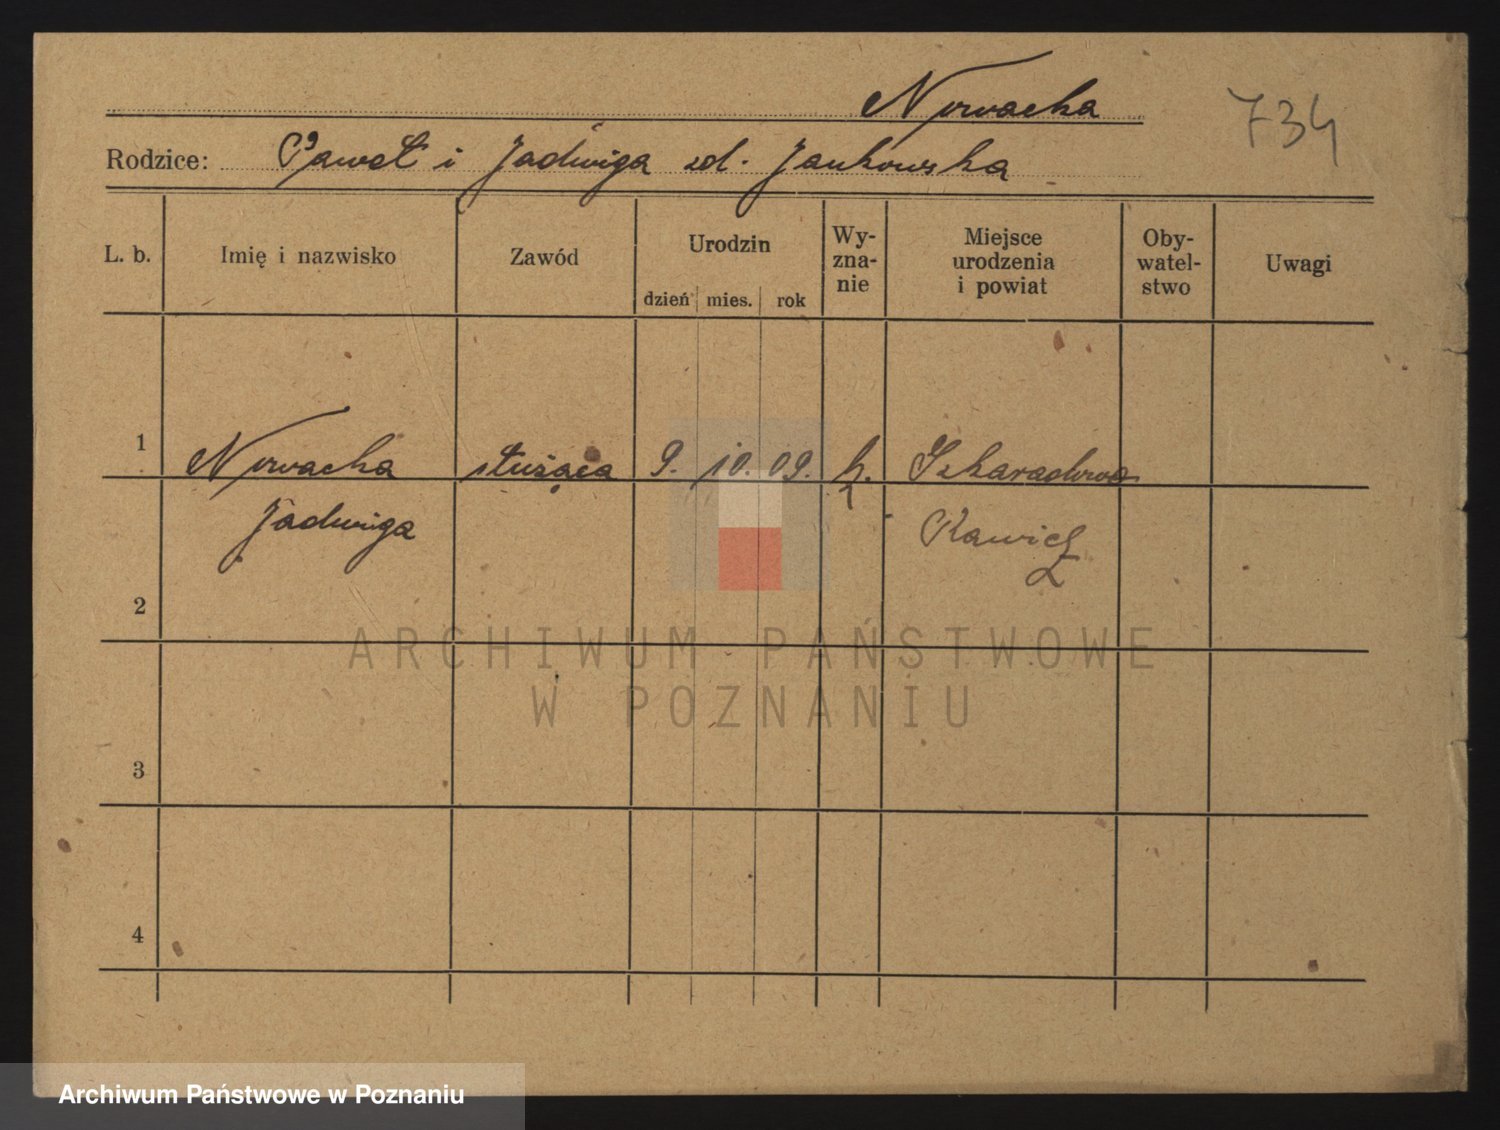 Nowacka
734
Rodzice: Paweł i Jadwiga zd. Jankowska
L. b. Imię i nazwisko Zawód Urodzin dzień mies. rok Wy-zna-nie Miejsce urodzenia i powiat Oby-watel-stwo Uwagi
1 Nowacka służąca 9. 10. 09. k. Szkaradowo
Jadwiga Rawicz
2
ARCHIWUM PAŃSTWOWE
W POZNANIU
3
4
Archiwum Państwowe w Poznaniu